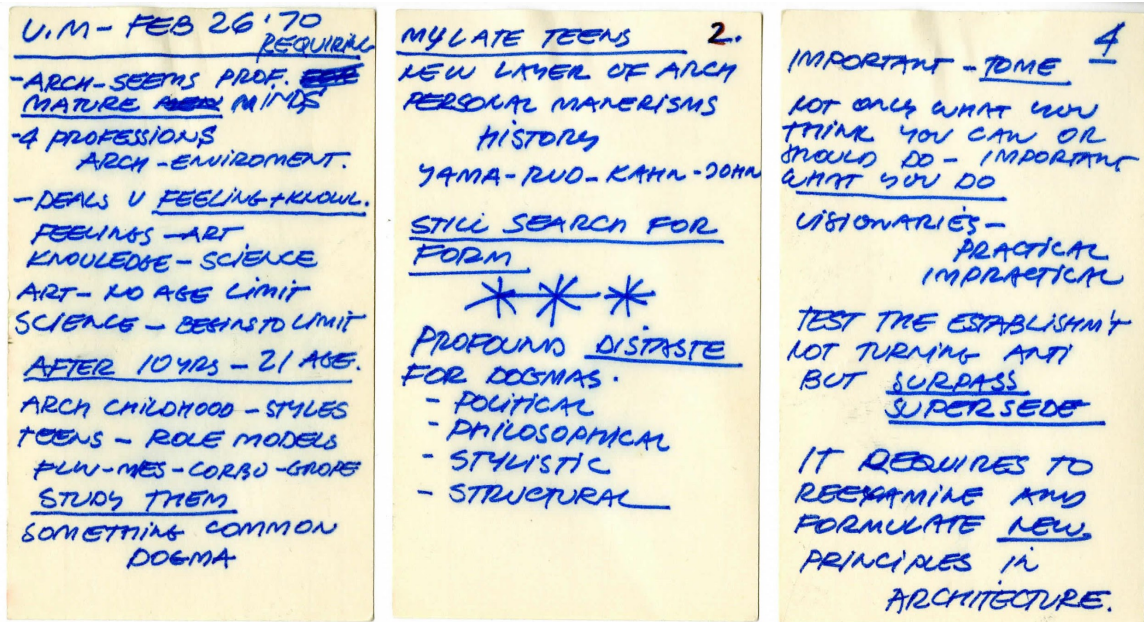 U.M - FEB 26 '70
REQUIRING
-ARCH-SEEMS PROF.
MATURE MINDS
-4 PROFESSIONS
ARCH-ENVIROMENT.
-DEALS U FEELING+KNOWL.
FEELINGS-ART
KNOWLEDGE-SCIENCE
ART-NO AGE LIMIT
SCIENCE-BEGINS TO LIMIT
AFTER 10 YRS - 21 AGE.
ARCH CHILDHOOD-STYLES
TEENS - ROLE MODELS
FLW-MES-CORBU-GROPE
STUDY THEM
SOMETHING COMMON
DOGMA
MY LATE TEENS 2.
NEW LAYER OF ARCH
PERSONAL MANERISMS
HISTORY
YAMA-RUD-KAHN-JOHN
STILL SEARCH FOR
FORM
PROFOUND DISTASTE
FOR DOGMAS.
- POLITICAL
- PHILOSOPHICAL
- STYLISTIC
- STRUCTURAL
4
IMPORTANT - TO ME
NOT ONLY WHAT YOU
THINK YOU CAN OR
SHOULD DO - IMPORTANT
WHAT YOU DO
VISIONARIES-
PRACTICAL
IMPRACTICAL
TEST THE ESTABLISHM'T
NOT TURNING ANTI
BUT SURPASS
SUPERSEDE
IT REQUIRES TO
REEXAMINE AND
FORMULATE NEW
PRINCIPLES IN
ARCHITECTURE.